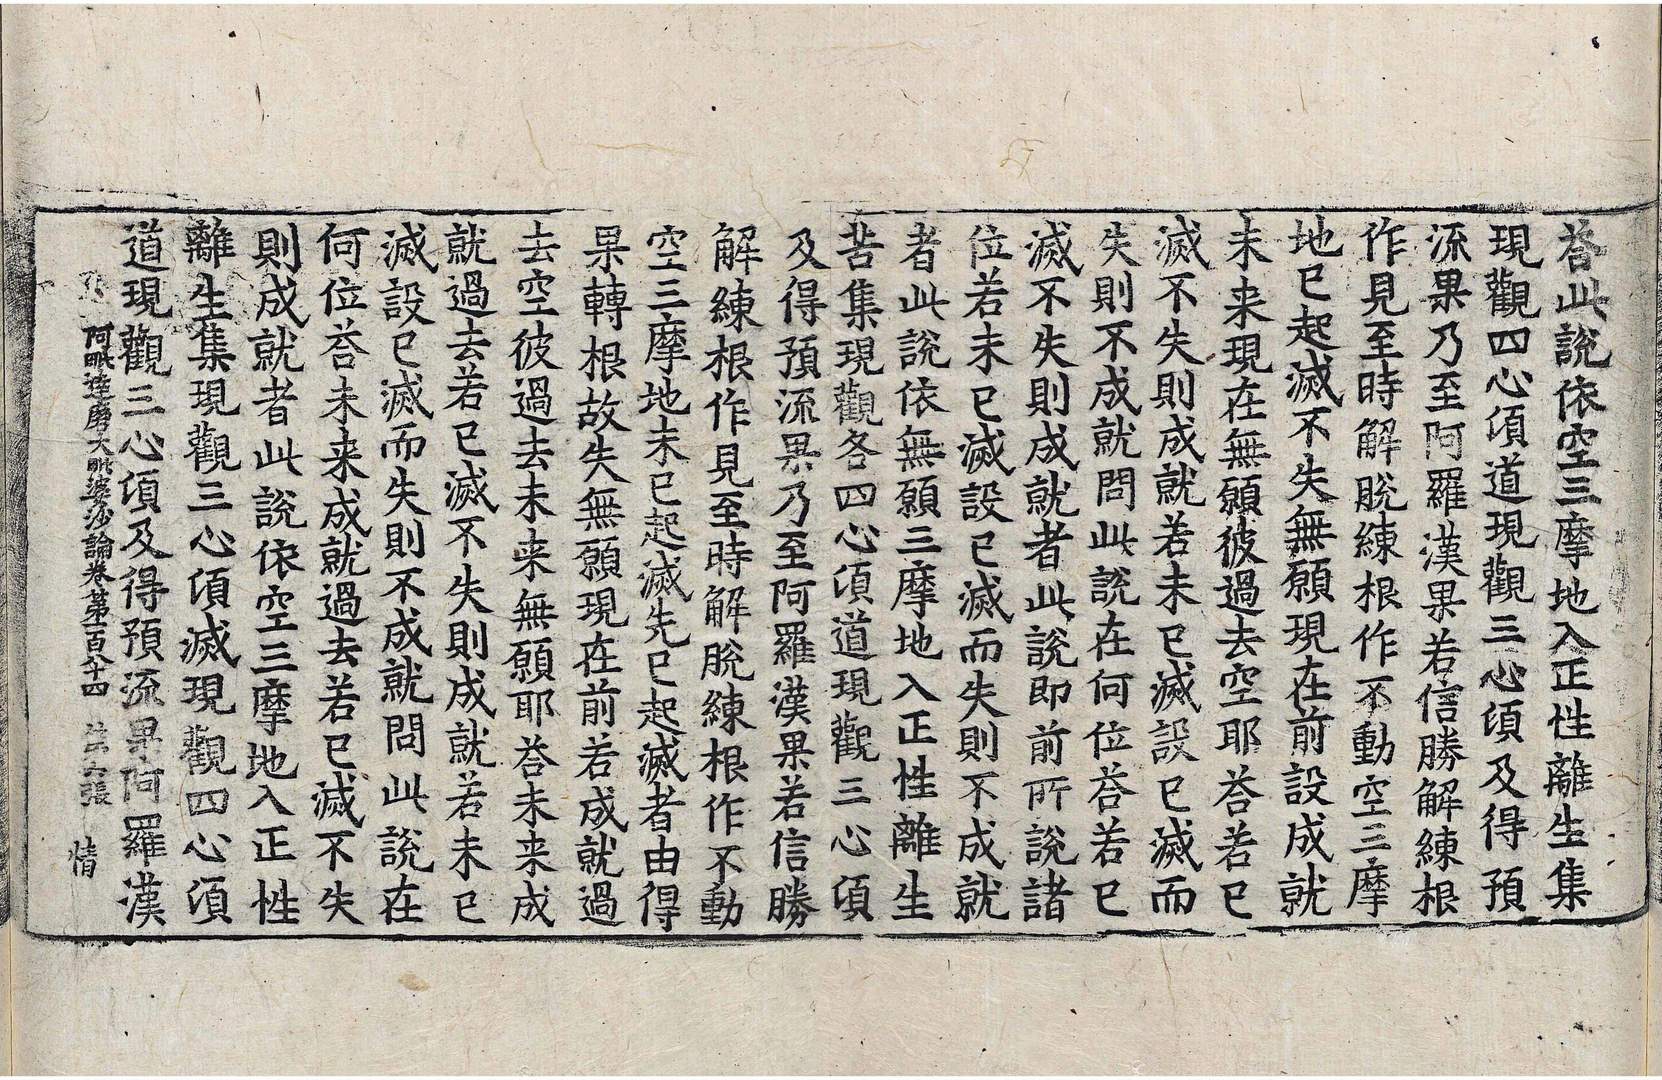 荅此說依空三摩地入正性離生集
現觀四心須道現觀三心須及得預
流果乃至阿羅漢果若信勝解練根
作見至時解脫練根作不動空三摩
地已起滅不失無願現在前設成就
未来現在無願彼過去空耶荅若已
滅不失則成就若未已滅設已滅而
失則不成就問此說在何位荅若已
滅不失則成就者此說即前所說諸
位若未已滅設已滅而失則不成就
者此說依無願三摩地入正性離生
苦集現觀各四心須道現觀三心須
及得預流果乃至阿羅漢果若信勝
解練根作見至時解脫練根作不動
空三摩地未已起滅先已起滅者由得
果轉根故失無願現在前若成就過
去空彼過去未来無願耶荅未来成
就過去若已滅不失則成就若未已
滅設已滅而失則不成就問此說在
何位荅未来成就過去若已滅不失
則成就者此說依空三摩地入正性
離生集現觀三心須滅現觀四心須
道現觀三心須及得預流果阿羅漢
阿毗達磨大毗婆沙論卷苐一百八十四 張 情